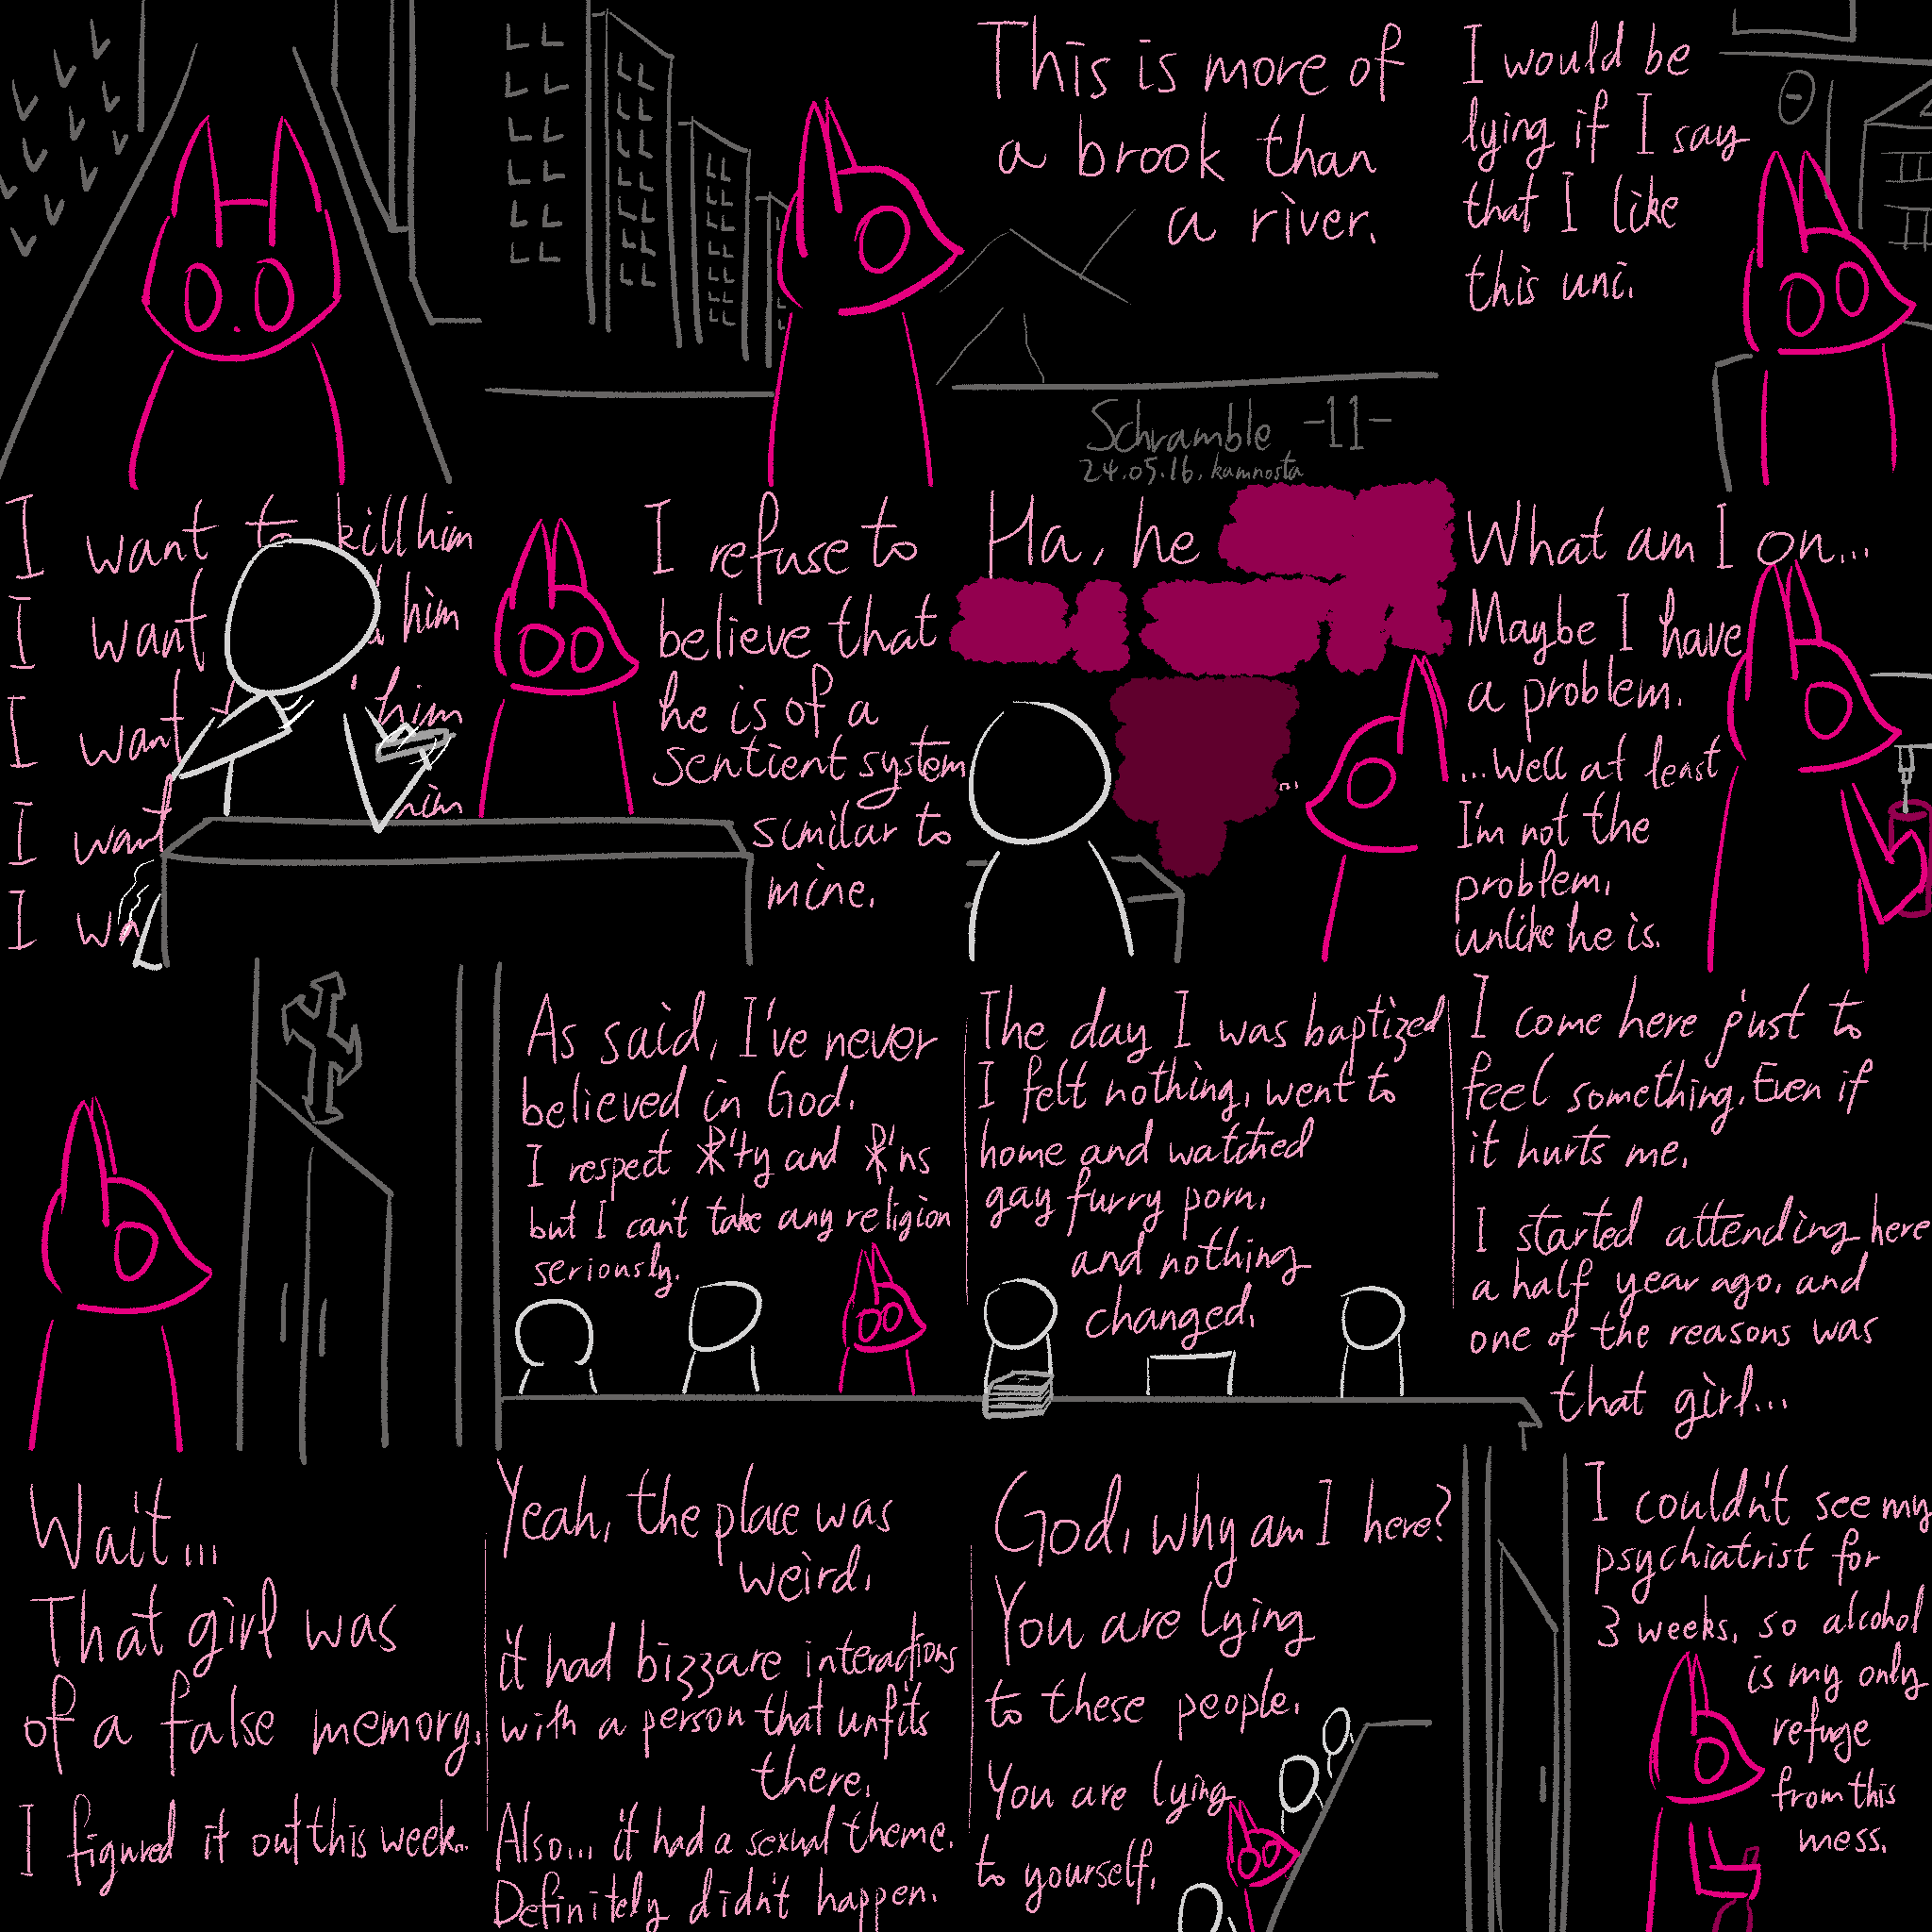 This is more of
a brook than
a river.
I would be
lying if I say
that I like
this uni.
Schramble -11-
24.05.16. kamnosta
I want to kill him
I want him
I want him
I want him
I wa
I refuse to
believe that
he is of a
sentient system
similar to
mine.
Ha, he
...
What am I on...
Maybe I have
a problem.
...Well at least
I'm not the
problem,
unlike he is.
As said, I've never
believed in God.
I respect ☧'ty and ☧'ns
but I can't take any religion
seriously.
The day I was baptized
I felt nothing, went to
home and watched
gay furry porn,
and nothing
changed.
I come here just to
feel something. Even if
it hurts me.
I started attending here
a half year ago, and
one of the reasons was
that girl...
Wait...
That girl was
of a false memory.
I figured it out this week..
Yeah, the place was
weird,
it had bizzare interactions
with a person that unfits
there.
Also... it had a sexual theme.
Definitely didn't happen.
God, why am I here?
You are lying
to these people.
You are lying
to yourself.
I couldn't see my
psychiatrist for
3 weeks, so alcohol
is my only
refuge
from this
mess.